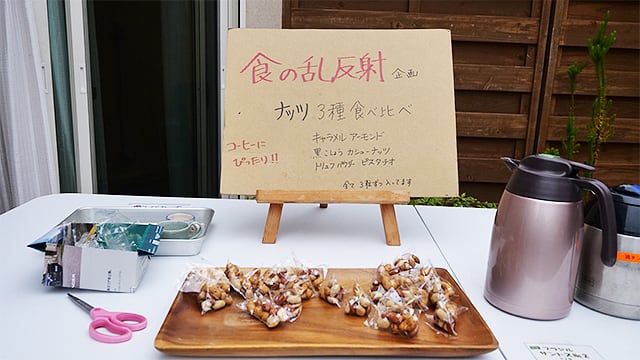 食の乱反射 企画
ナッツ 3種 食べ比べ
コーヒーに
ぴったり!!
キャラメル アーモンド
黒こしょう カシューナッツ
トリュフパウダー ピスタチオ
全て 3粒ずつ入ってます
ブラジル
サントスNo.2